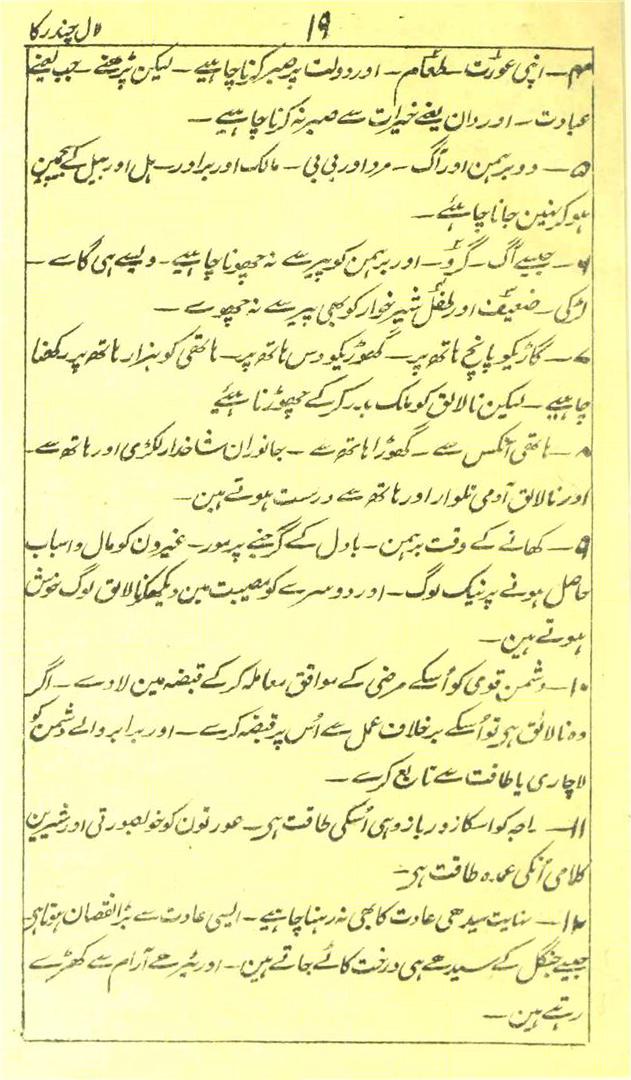 لال چندرکا ۱۹
۴ـ اپنی عورت ـ طعام ـ اور دولت پر صبر کرنا چاہیے ـ لیکن پڑھنے ـ جپ یعنے
عبادت ـ اور دان یعنے خیرات سے صبر نہ کرنا چاہیے ـ
۵ـ دو برہمن اور آگ ـ مرد اور بی بی ـ مالک اور برادر ـ ہل اور بیل کے بیچمین
ہو کر نہین جانا چاہئے ـ
۶ـ جیسے آگ ـ گرو ـ اور برہمن کو پیر سے نہ چھونا چاہیے ـ ویسے ہی گاے ـ
لڑکی ـ ضعیف اور طفل شیر خوار کو بھی پیر سے نہ چھوے ـ
۷ـ گاڑیکو پانچ ہاتھ پر ـ گھوڑیکو دس ہاتھ پر ـ ہاتھی کو ہزار ہاتھ پر رکھنا
چاہیے ـ لیکن نالایق کو ملک بدر کر کے چھوڑنا چاہئے
۸ـ ہاتھی آنکس سے ـ گھوڑا ہاتھ سے ـ جانوران شاخدار لکڑی اور ہاتھ سے ـ
اور نالایق آدمی تلوار اور ہاتھ سے درست ہوتے ہین ـ
۹ـ کھانے کے وقت برہمن ـ بادل کے گرجنے پر مور ـ غیرون کو مال و اسباب
حاصل ہونے پر نیک لوگ ـ اور دوسرے کو مصیبت مین دیکھکر نالایق لوگ خوش
ہوتے ہین ـ
۱۰ـ دشمن قوی کو اُسکے مرضی کے موافق معاملہ کر کے قبضہ مین لاوے ـ اگر
وہ نالائق ہی تو اُسکے برخلاف عمل سے اُس پر قبضہ کرے ـ اور برابر والے دشمن کو
لاچاری یا طاقت سے تابع کرے ـ
۱۱ـ راجہ کو اسکا زور بازو ہی اُسکی طاقت ہی ـ عورتون کو خوبصورتی اور شیرین
کلامی اُنکی عمدہ طاقت ہی ـ
۱۲ـ نہایت سیدھی عادت کا بھی نہ رہنا چاہیے ـ ایسی عادت سے بڑا نقصان ہوتا ہی
جیسے جنگل کے سیدھے ہی درخت کاٹے جاتے ہین ـ اور ٹیڑھے آرام سے کھڑے
رہتے ہین ـ